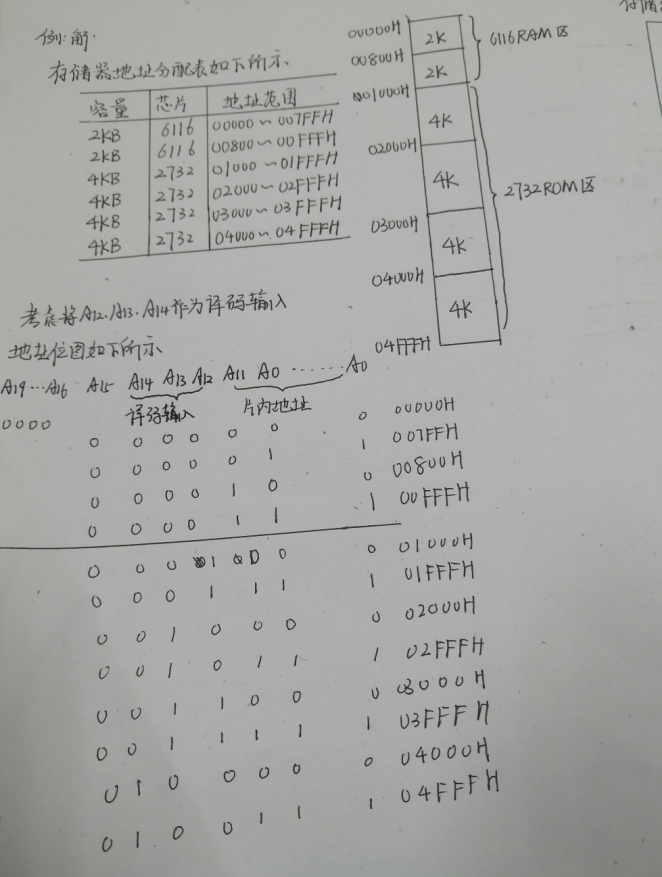 例:解:
存储器地址分配表如下所示
容量 芯片 地址范围
2KB 6116 00000~007FFH
2KB 6116 00800~00FFFH
4KB 2732 01000~01FFFH
4KB 2732 02000~02FFFH
4KB 2732 03000~03FFFH
4KB 2732 04000~04FFFH
00000H
2K
00800H
2K
6116RAM区
01000H
4K
02000H
4K
2732ROM区
03000H
4K
04000H
4K
04FFFH
考虑将A12、A13、A14作为译码输入
地址位图如下所示
A19…A16 A15 A14 A13 A12 A11 A0 …… A0
译码输入 片内地址
0000
0 0 0 0 0 0 0 00000H
0 0 0 0 0 1 1 007FFH
0 0 0 0 1 0 0 00800H
0 0 0 0 1 1 1 00FFFH
0 0 0 1 0 0 0 01000H
0 0 0 1 1 1 1 01FFFH
0 0 1 0 0 0 0 02000H
0 0 1 0 1 1 1 02FFFH
0 0 1 1 0 0 0 03000H
0 0 1 1 1 1 1 03FFFH
0 1 0 0 0 0 0 04000H
0 1 0 0 1 1 1 04FFFH